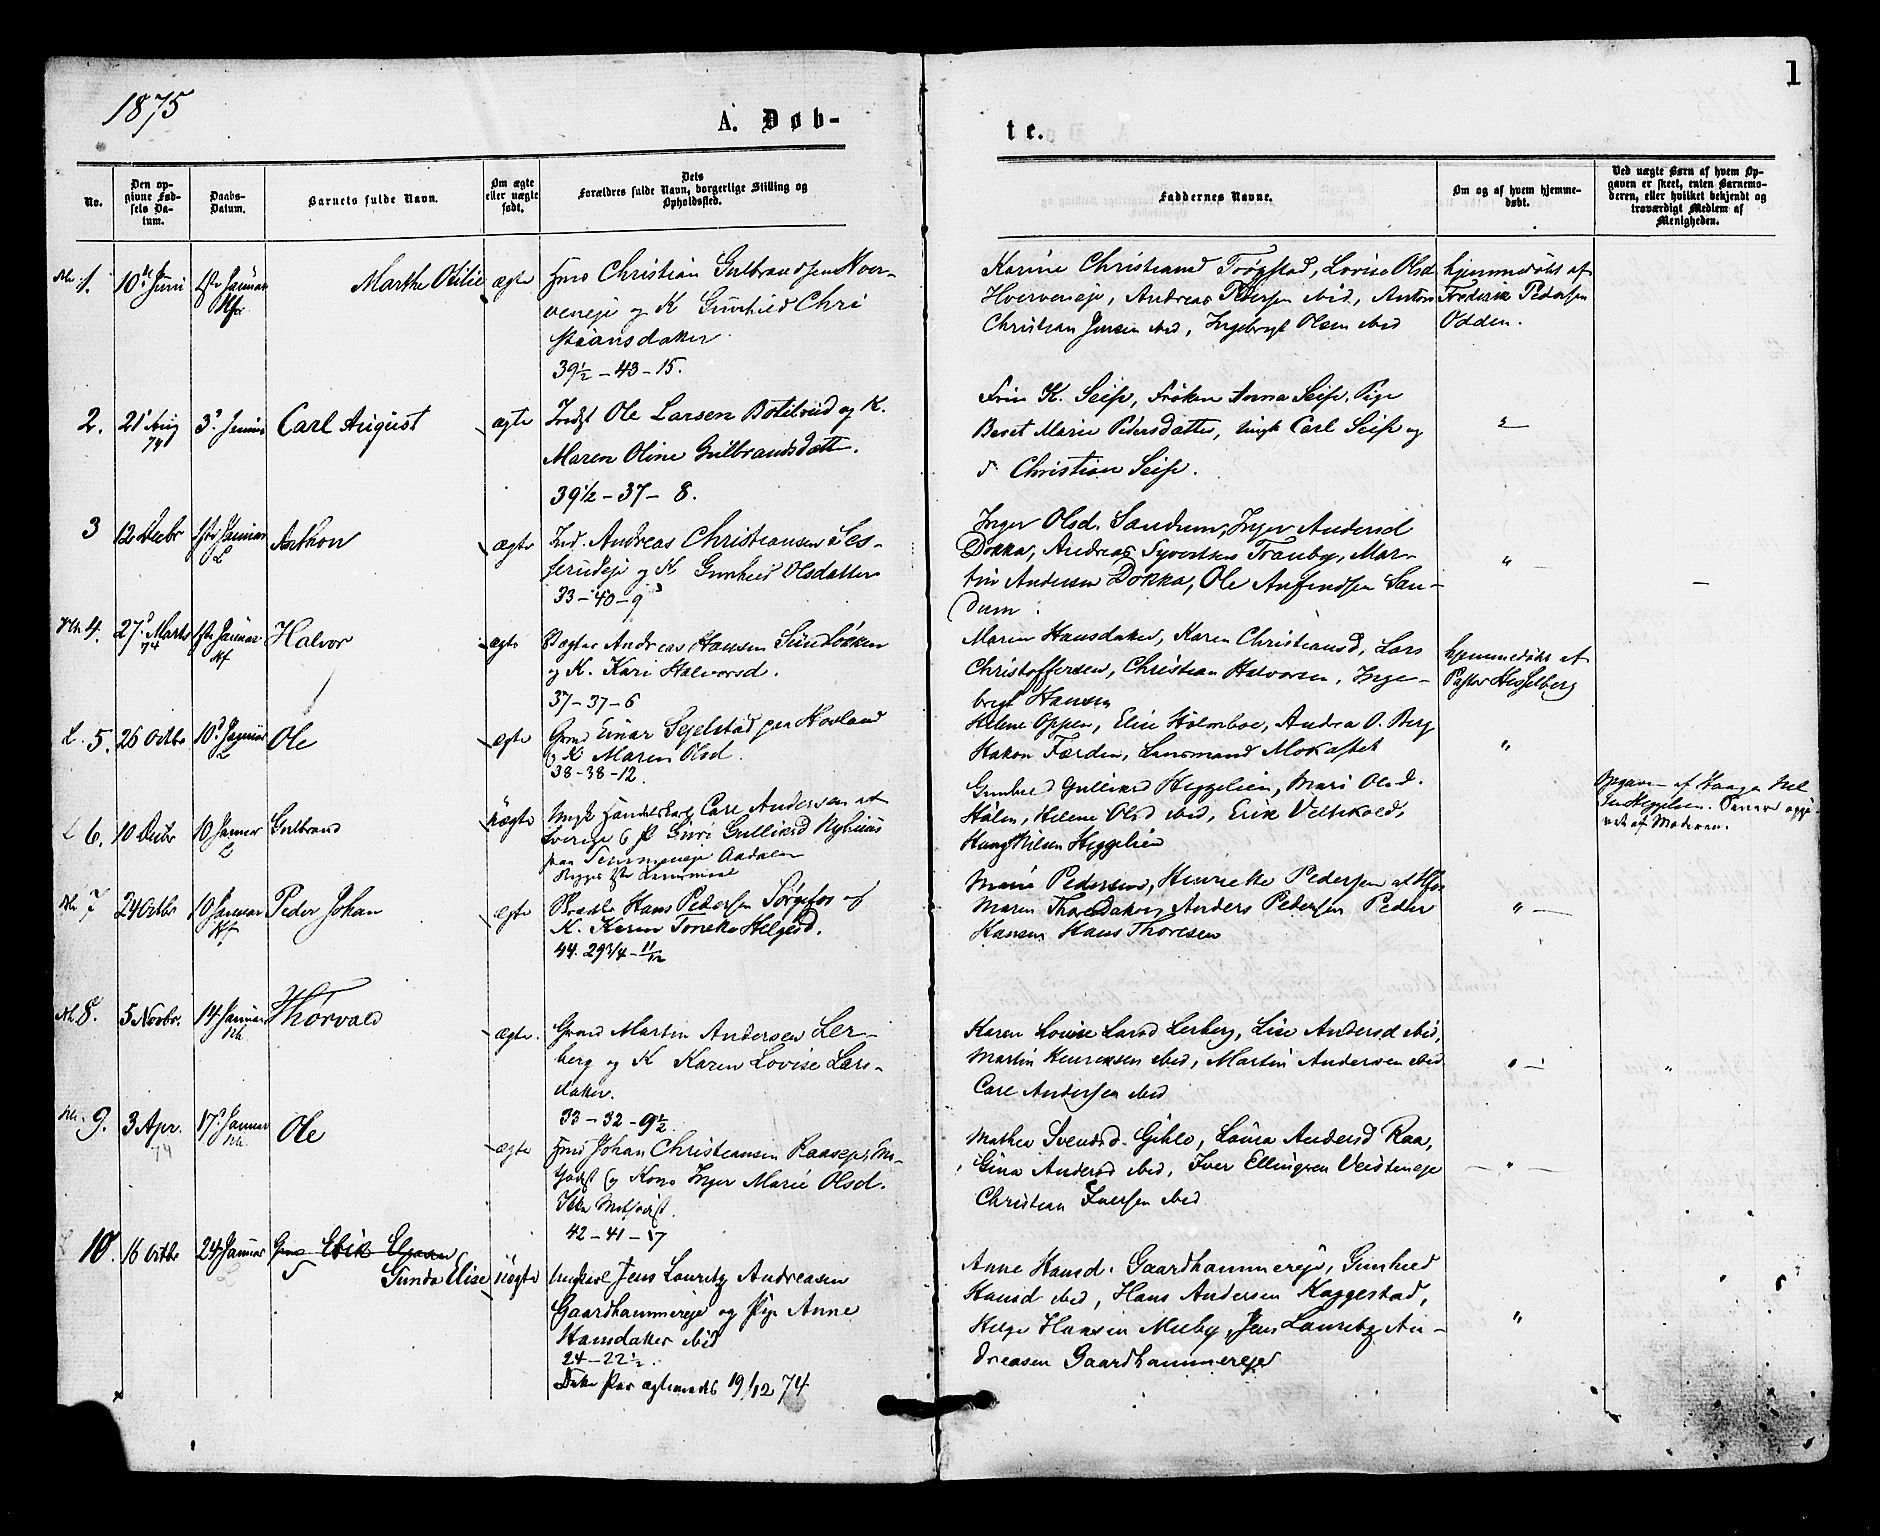 1875
1
A. Døb-
te.
No.
Den op-
givne Fød-
sels Da-
tum.
Daabs-
Datum.
Barnets fulde Navn.
Om ægte
eller uægte
født.
Dets
Forældres fulde Navn, borgerlige Stilling og
Opholdssted.
Faddernes Navne.
Om og af hvem hjemme-
døbt.
Ved uægte Børn af hvem Op-
gaven er skeet, enten Barnemo-
deren, eller hvilket bekjendt og
troværdigt Medlem af
Menigheden.
1.
10de Juni
1ste Januar
Marthe Otilie
ægte
Christian Gulbrandsen Hver-
veneje og K Gunhild Chri
stiansdatter
39½ - 43 - 15.
Karine Christiansd Trøgstad, Lovise Olsd
Hverveneje, Andreas Pedersen ibid, Anton
Christian Jensen ibid, Ingebregt Olsen ibid
hjemmedøbt af
Frederik Pedersen
Odden.
2.
21 Aug
74
3
Carl August
ægte
Ole Larsen Botilrud og K.
Maren Oline Gulbrandsdatter.
39½ - 37 - 8.
Fru K. Seip, Frøken Anna Seip, Pige
Beret Marie Pedersdatter, Ungk Carl Seip og
Christian Seip.
3
12 Decbr
1ste Januar
L
Anthon
ægte
Ind. Andreas Christiansen
og K Gunhild Olsdatter
33 - 40 - 9
Inger Olsd. Sandum, Inger Andersd
Dokka, Andreas Syvertsen Tranby, Mar-
tin Andersen Dokka, Ole Anfindsen San-
dum.
4.
27 Marts
74
1ste Januar
Hf
Halvor
ægte
Andreas Hansen Sundløkken
og K. Kari Halvorsd.
37 - 37 - 6
Maren Hansdatter, Karen Christiansd, Lars
Christoffersen, Christian Halvorsen, Inge-
bregt Hansen
hjemmedøbt af
Pastor Hesselberg
L. 5.
26 Octbr
10 Januar
L
Ole
ægte
Einar Sejelstad Hovland
og K Maren Olsd.
38 - 38 - 12.
Helene Oppen, Elise Holmboe, Andrea O. Berg
Hakon Færden, Lensmand
L 6.
10 Decbr
10 Januar
L
Gulbrand
uægte
Ungk Carl Andersen af
Sverige og P. Guri Gulliksd
Aadalen
Gunhild Gulliksd Heggelien, Mari Olsd.
Hålien, Helene Olsd ibid, Erik Veltekold,
Haag Nilsen Heggelien
Opgaven af Haagen Nil
sen Heggelien.
af Moderen.
7
24 Octbr
10 Januar
Hf
Peder Johan
ægte
Hans Pedersen Sørgefos og
K. Karen Tomette Helgesd.
44. 29 3/4 - 11/12
Marie Pedersen, Henriette Pedersen af Hfos
Maren Thoresdatter, Anders Pedersen Peder
Hansen Hans Thoresen
8.
5 Novbr.
14 Januar
Nh.
Thorvald
ægte.
Martin Andersen Ler-
berg og K Karen Lovise Lars-
datter.
33 - 32 - 9½
Karen Lovise Larsd Lerberg, Lise Andersd ibid,
Martin Henriksen ibid, Martin Andersen ibid
Carl Andersen ibid
9.
3 Apr.
74
17 Januar
Nh.
Ole
ægte
Johan Christiansen
og Kone Inger Marie Olsd.
42 - 41 - 17
Mathea Svendsd. Gihle, Laura Andersd Raa,
Gina Andersd ibid, Iver Ellingsen
Christian Iversen ibid
10.
16 Octbr
24 Januar
L
Gunda Elise
uægte
Ungkarl Jens Lauritz Andreasen
Gaardhammereje og Pige Anne
Hansdatter ibid
24 - 22½
Dette Par ægteviedt 19/12 74.
Anne Hansd. Gaardhammereje, Gunhild
Hansd ibid, Hans Andersen Kaggestad,
Helge Hansen Mæby, Jens Lauritz An-
dreasen Gaardhammereje